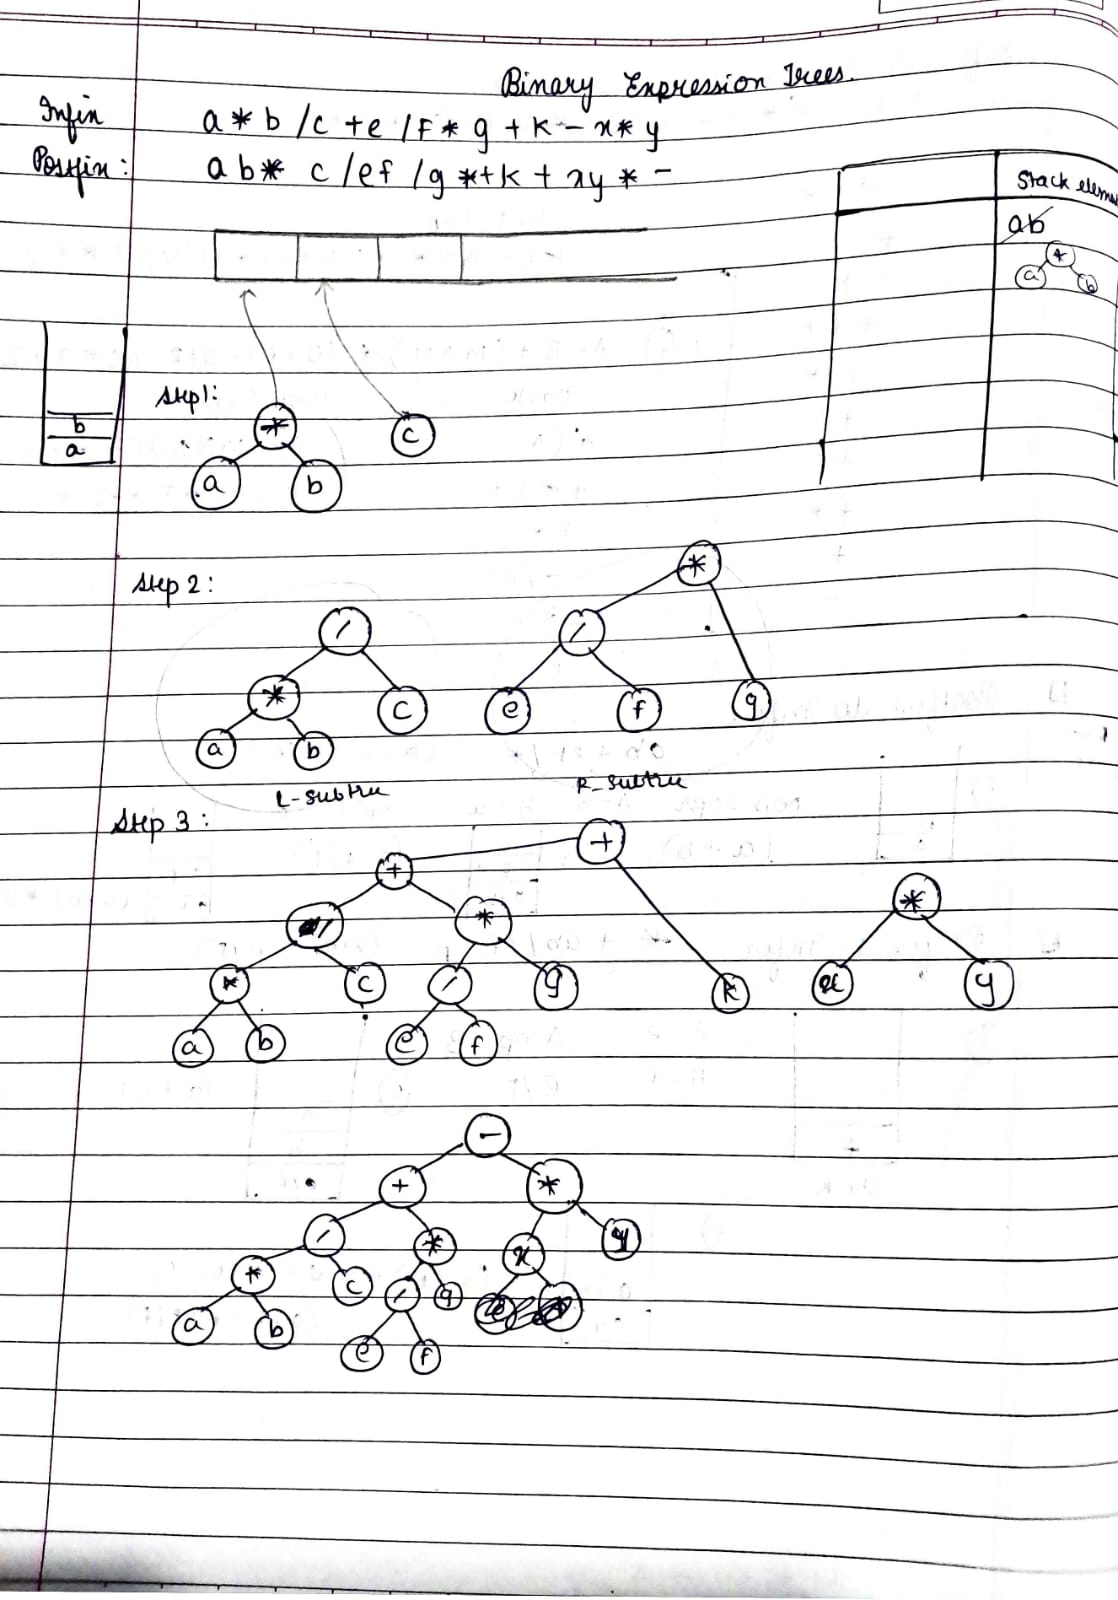 Binary Expression Trees.
Infix a * b / c + e / f * g + k - x * y
Postfix: a b * c / e f / g * + k + x y * -
Stack eleme
ab
*
a b
Step 1:
b
a
* c
a b
Step 2:
*
/ /
* c e f g
a b
L-subtree R-subtree
Step 3:
+
+
/ * *
* c / g k x y
a b e f
-
+ *
/ * x y
* c / g
a b
e f